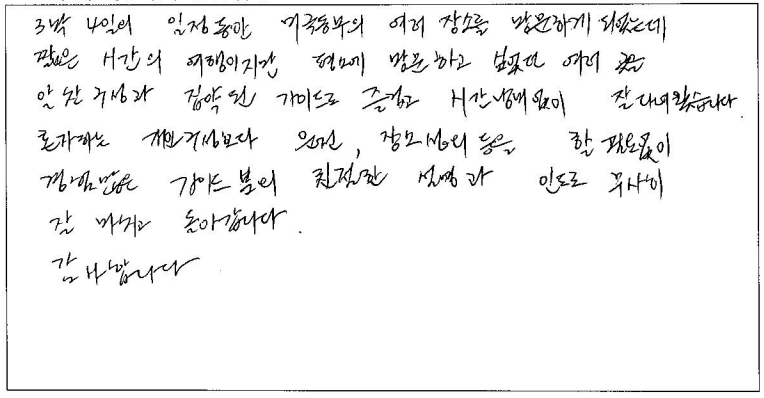 3박 4일의 일정동안 미국동부의 여러 장소를 방문하게 되었는데
짧은 시간의 여행이지만 평소에 방문하고 싶었던 여러 곳을
알찬 구성과 집약된 가이드로 즐겁고 시간낭비없이 잘 다녀왔습니다
혼자하는 개인구성보다 운전, 장소섭외 등을 할 필요없이
경험많은 가이드분의 친절한 설명과 인도로 무사히
잘 마치고 돌아갑니다.
감사합니다